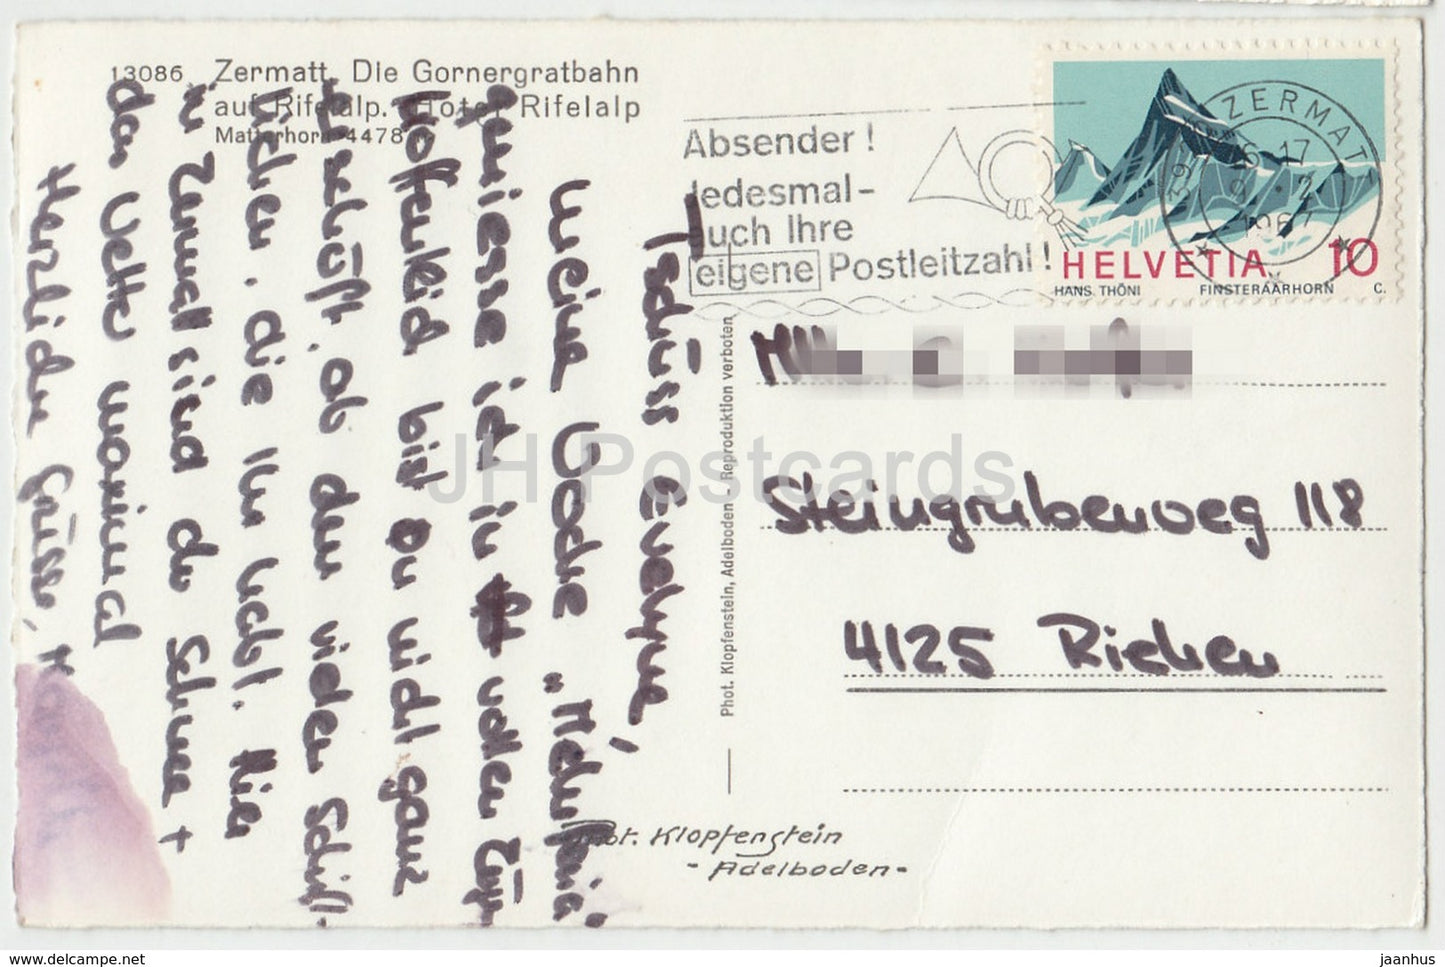 13086 Zermatt. Die Gornergratbahn
auf Rifelalp. Hotel Rifelalp
Matterhorn 4478 m
Absender!
Jedesmal-
auch Ihre
eigene Postleitzahl!
ZERMATT
HELVETIA 10
HANS. THÖNI FINSTERAARHORN C.
Tschüss Evelyne,
meine Woche „
geniesse ich in vollen Züg
Hoffentlich bist Du nicht ganz
geschafft, ob den vielen Schiff-
lichen, die Ihr habt. Hier
in Zermatt sind der Schnee +
das Wetter maximal
Herzliche Grüsse,
Steingrubenweg 118
4125 Riehen
Phot. Klopfenstein, Adelboden - Reproduktion verboten
Phot. Klopfenstein
- Adelboden -
JH Postcards
www.hippostcard.com
jaanhus